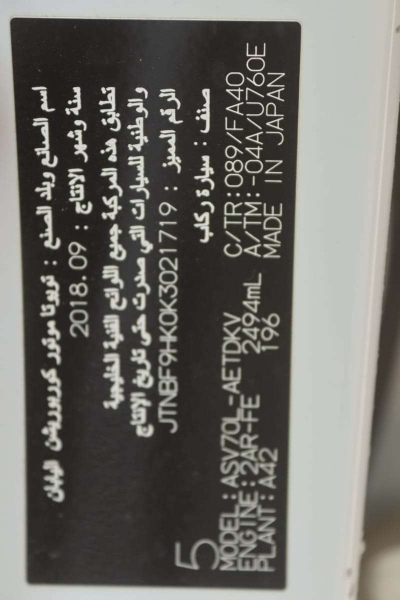 اسم الصانع وبلد الصنع : تويوتا موتور كوربوريشن اليابان
سنة وشهر الانتاج : 2018.09
تطابق هذه المركبة جميع اللوائح الفنية الخليجية
والوطنية للسيارات التي صدرت حتى تاريخ الإنتاج
الرقم المميز : JTNBF9HK0K3021719
صنف : سيارة ركاب
5
MODEL:ASV70L-AETDKV C/TR:089/FA40
ENGINE:2AR-FE 2494mL A/TM:-04A/U760E
PLANT:A42 196 MADE IN JAPAN